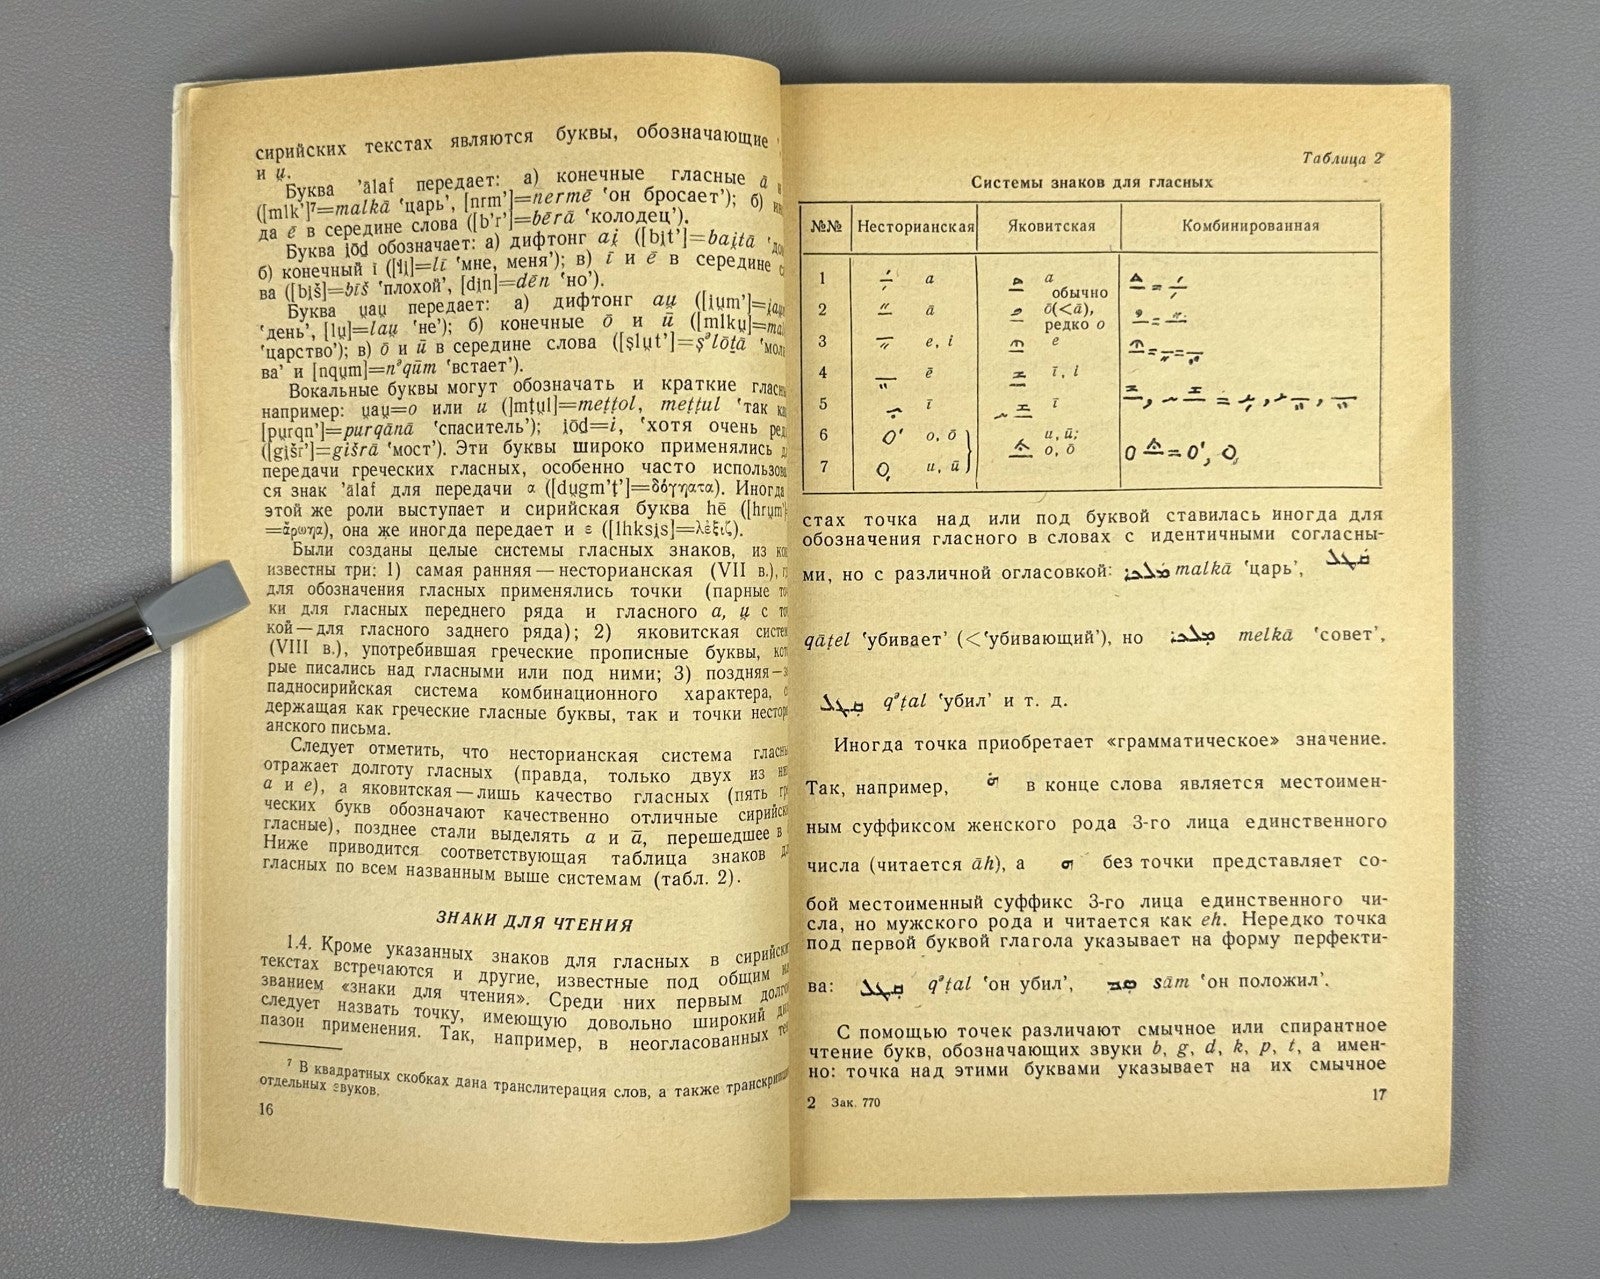 сирийских текстах являются буквы, обозначающие
и u̯.
Буква ’ālaf передает: а) конечные гласные ā
([mlk’]⁷=malkā ‘царь’, [nrm’]=nermē ‘он бросает’); б)
да ē в середине слова ([b’r’]=bērā ‘колодец’).
Буква i̯ōd обозначает: а) дифтонг ai̯ ([bi̯t’]=bai̯tā
б) конечный ī ([li̯]=lī ‘мне, меня’); в) ī и ē в середине
ва ([bi̯š]=bīš ‘плохой’, [di̯n]=dēn ‘но’).
Буква u̯au̯ передает: а) дифтонг au̯ ([i̯u̯m’]=
‘день’, [lu̯]=lau̯ ‘не’); б) конечные ō и ū ([mlku̯]=
‘царство’); в) ō и ū в середине слова ([ṣlu̯t’]=ṣᵊlōṯā
ва’ и [nqu̯m]=nᵊqūm ‘встает’).
Вокальные буквы могут обозначать и краткие
например: u̯au̯=o или u ([mṭu̯l]=meṭṭol, meṭṭul ‘так
[pu̯rqn’]=purqānā ‘спаситель’); i̯ōd=i, ‘хотя очень
([gi̯šr’]=gišrā ‘мост’). Эти буквы широко применялись
передачи греческих гласных, особенно часто
ся знак ’ālaf для передачи α ([du̯gm’ṭ’]=δόγματα). Иногда
этой же роли выступает и сирийская буква hē ([hru̯m’]
=ἄρωμα), она же иногда передает и ε ([lhksi̯s]=λέξις).
Были созданы целые системы гласных знаков, из
известны три: 1) самая ранняя — несторианская (VII в.),
для обозначения гласных применялись точки (парные
ки для гласных переднего ряда и гласного a, u̯ с
кой — для гласного заднего ряда); 2) яковитская
(VIII в.), употребившая греческие прописные буквы,
рые писались над гласными или под ними; 3) поздняя —
падносирийская система комбинационного характера,
держащая как греческие гласные буквы, так и точки
анского письма.
Следует отметить, что несторианская система
отражает долготу гласных (правда, только двух из
a и e), а яковитская — лишь качество гласных (пять
ческих букв обозначают качественно отличные
гласные), позднее стали выделять a и ā, перешедшее в
Ниже приводится соответствующая таблица знаков
гласных по всем названным выше системам (табл. 2).
ЗНАКИ ДЛЯ ЧТЕНИЯ
1.4. Кроме указанных знаков для гласных в
текстах встречаются и другие, известные под общим
званием «знаки для чтения». Среди них первым
следует назвать точку, имеющую довольно широкий
пазон применения. Так, например, в неогласованных
⁷ В квадратных скобках дана транслитерация слов, а также
отдельных звуков.
16
Таблица 2
Системы знаков для гласных
№№ Несторианская Яковитская Комбинированная
1 a a
обычно
2 ā ō(<ā),
редко o
3 e, i e
4 ē ī, i
5 ī ī
6 o, ō u, ū;
o, ō
7 u, ū
стах точка над или под буквой ставилась иногда для
обозначения гласного в словах с идентичными согласны-
ми, но с различной огласовкой: ܡܠܟܐ malkā ‘царь’, ܩܛܠ
qāṭel ‘убивает’ (<‘убивающий’), но ܡܠܟܐ melkā ‘совет’,
ܩܛܠ qᵊṭal ‘убил’ и т. д.
Иногда точка приобретает «грамматическое» значение.
Так, например, ܗ̇ в конце слова является местоимен-
ным суффиксом женского рода 3-го лица единственного
числа (читается āh), а ܗ без точки представляет со-
бой местоименный суффикс 3-го лица единственного чи-
сла, но мужского рода и читается как eh. Нередко точка
под первой буквой глагола указывает на форму перфекти-
ва: ܩܛܠ qᵊṭal ‘он убил’, ܣܡ sām ‘он положил’.
С помощью точек различают смычное или спирантное
чтение букв, обозначающих звуки b, g, d, k, p, t, а имен-
но: точка над этими буквами указывает на их смычное
2 Зак. 770
17